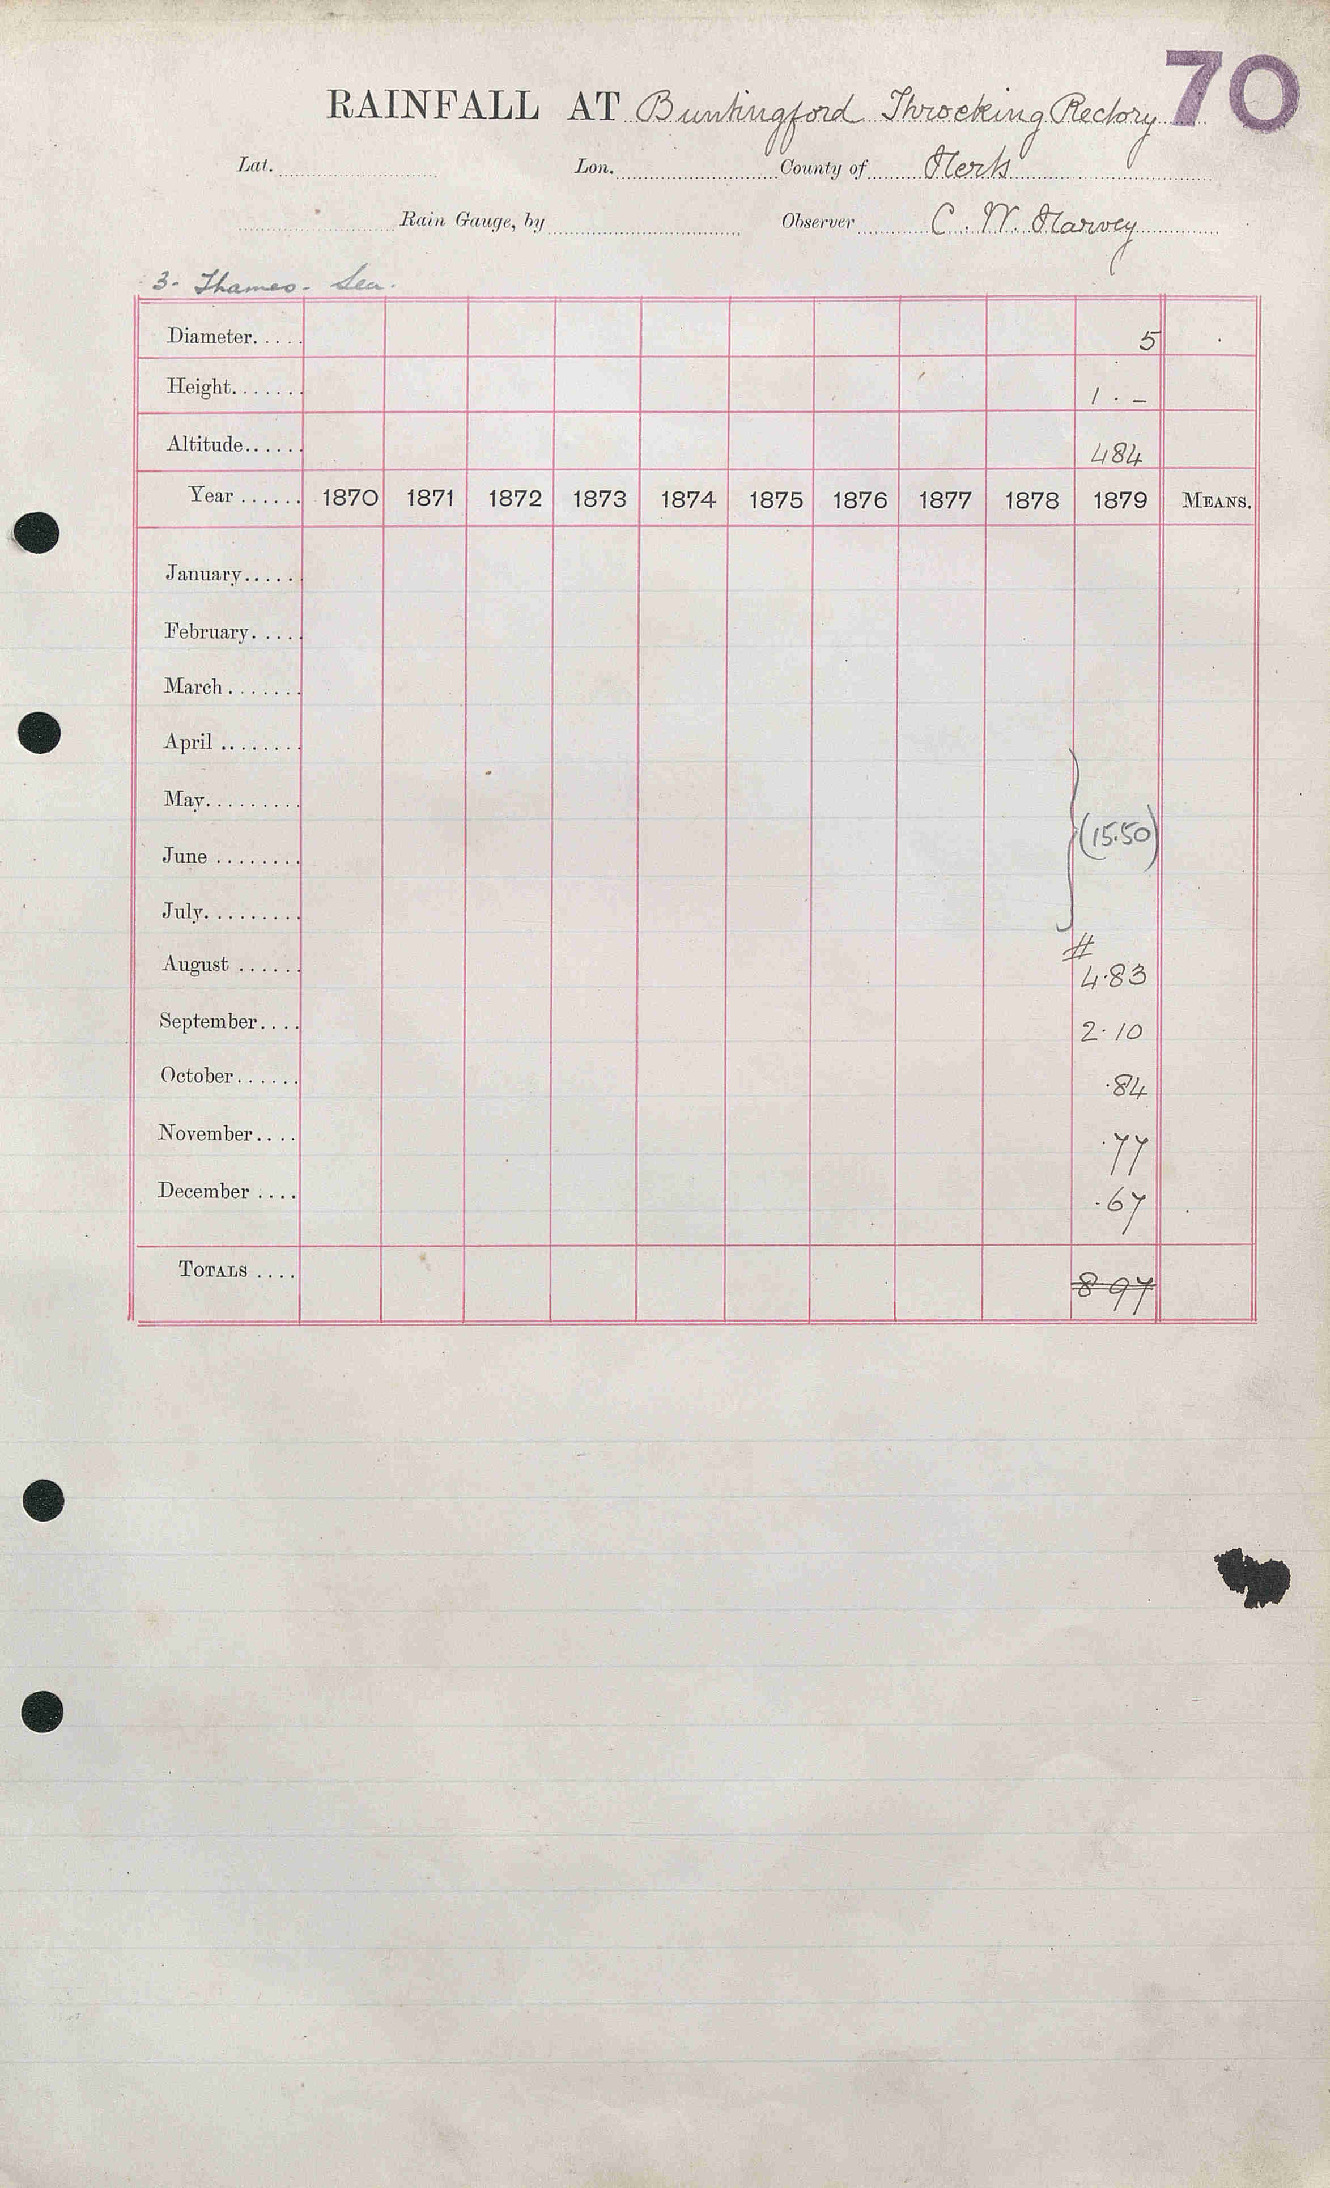 70
RAINFALL AT Buntingford Throcking Rectory
Lat. Lon. County of Herts
Rain Gauge, by Observer C. W. Harvey
3. Thames. Lea.
Diameter..... 5
Height....... 1 . –
Altitude...... 484
Year ...... 1870 1871 1872 1873 1874 1875 1876 1877 1878 1879 MEANS.
January......
February.....
March.......
April ........
May.........
(15.50)
June ........
July.........
#
August ...... 4.83
September.... 2.10
October...... .84
November.... .77
December .... .67
TOTALS .... 8 97